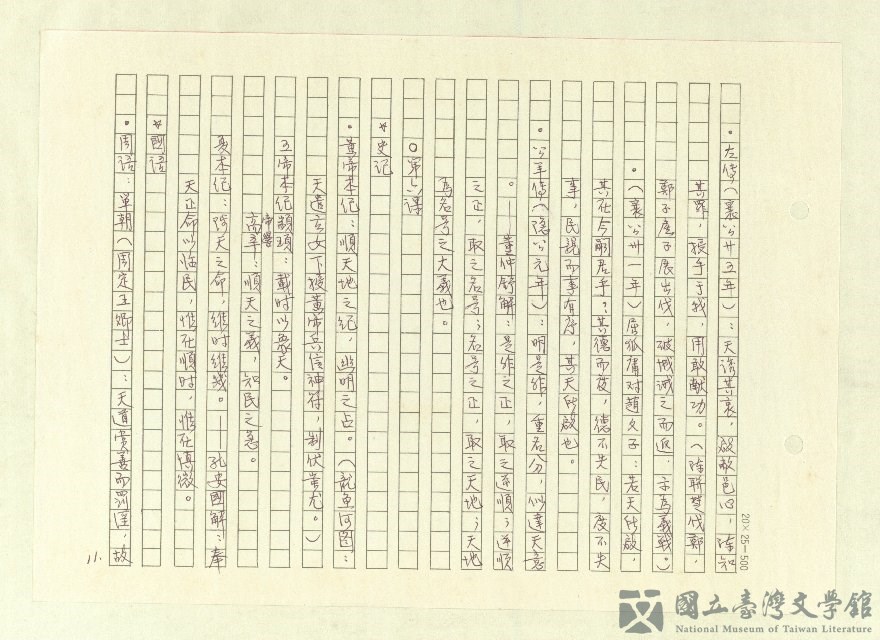 。左傳（襄公廿五年）：天誘其衷，啟敝邑心，陳知
其罪，授手于我，用敢献功。（陳聯楚伐鄭，
鄭子產子展出伐，破城誡之而返，字為義戰。）
。（襄公卅一年）屈狐庸对趙文子：若天所啟，
其在今嗣君乎？其德而度，德不失民，度不失
事，民親而事有序，其天所啟也。
。公羊傳（隱公元年）：明是非，重名分，似達天意
。——董仲舒解：是非之正，取之逆順；逆順
之正，取之名号；名号之正，取之天地；天地
為名号之大義也。
○第六課
*史记
。黃帝本纪：順天地之纪，幽明之占。（龍魚河图：
天遣玄女下授黃帝兵信神符，制伏蚩尤。）
五帝本纪顓頊：載时以象天。
高辛帝嚳：順天之義，知民之急。
夏本纪：陟天之命，維时維幾。——孔安國解：奉
天正命以临民，惟在順时，惟在慎微。
*國语
。周语：單朝（周定王卿士）：天道賞善而罰淫，故
11.
20×25=500
國立臺灣文學館
National Museum of Taiwan Literature